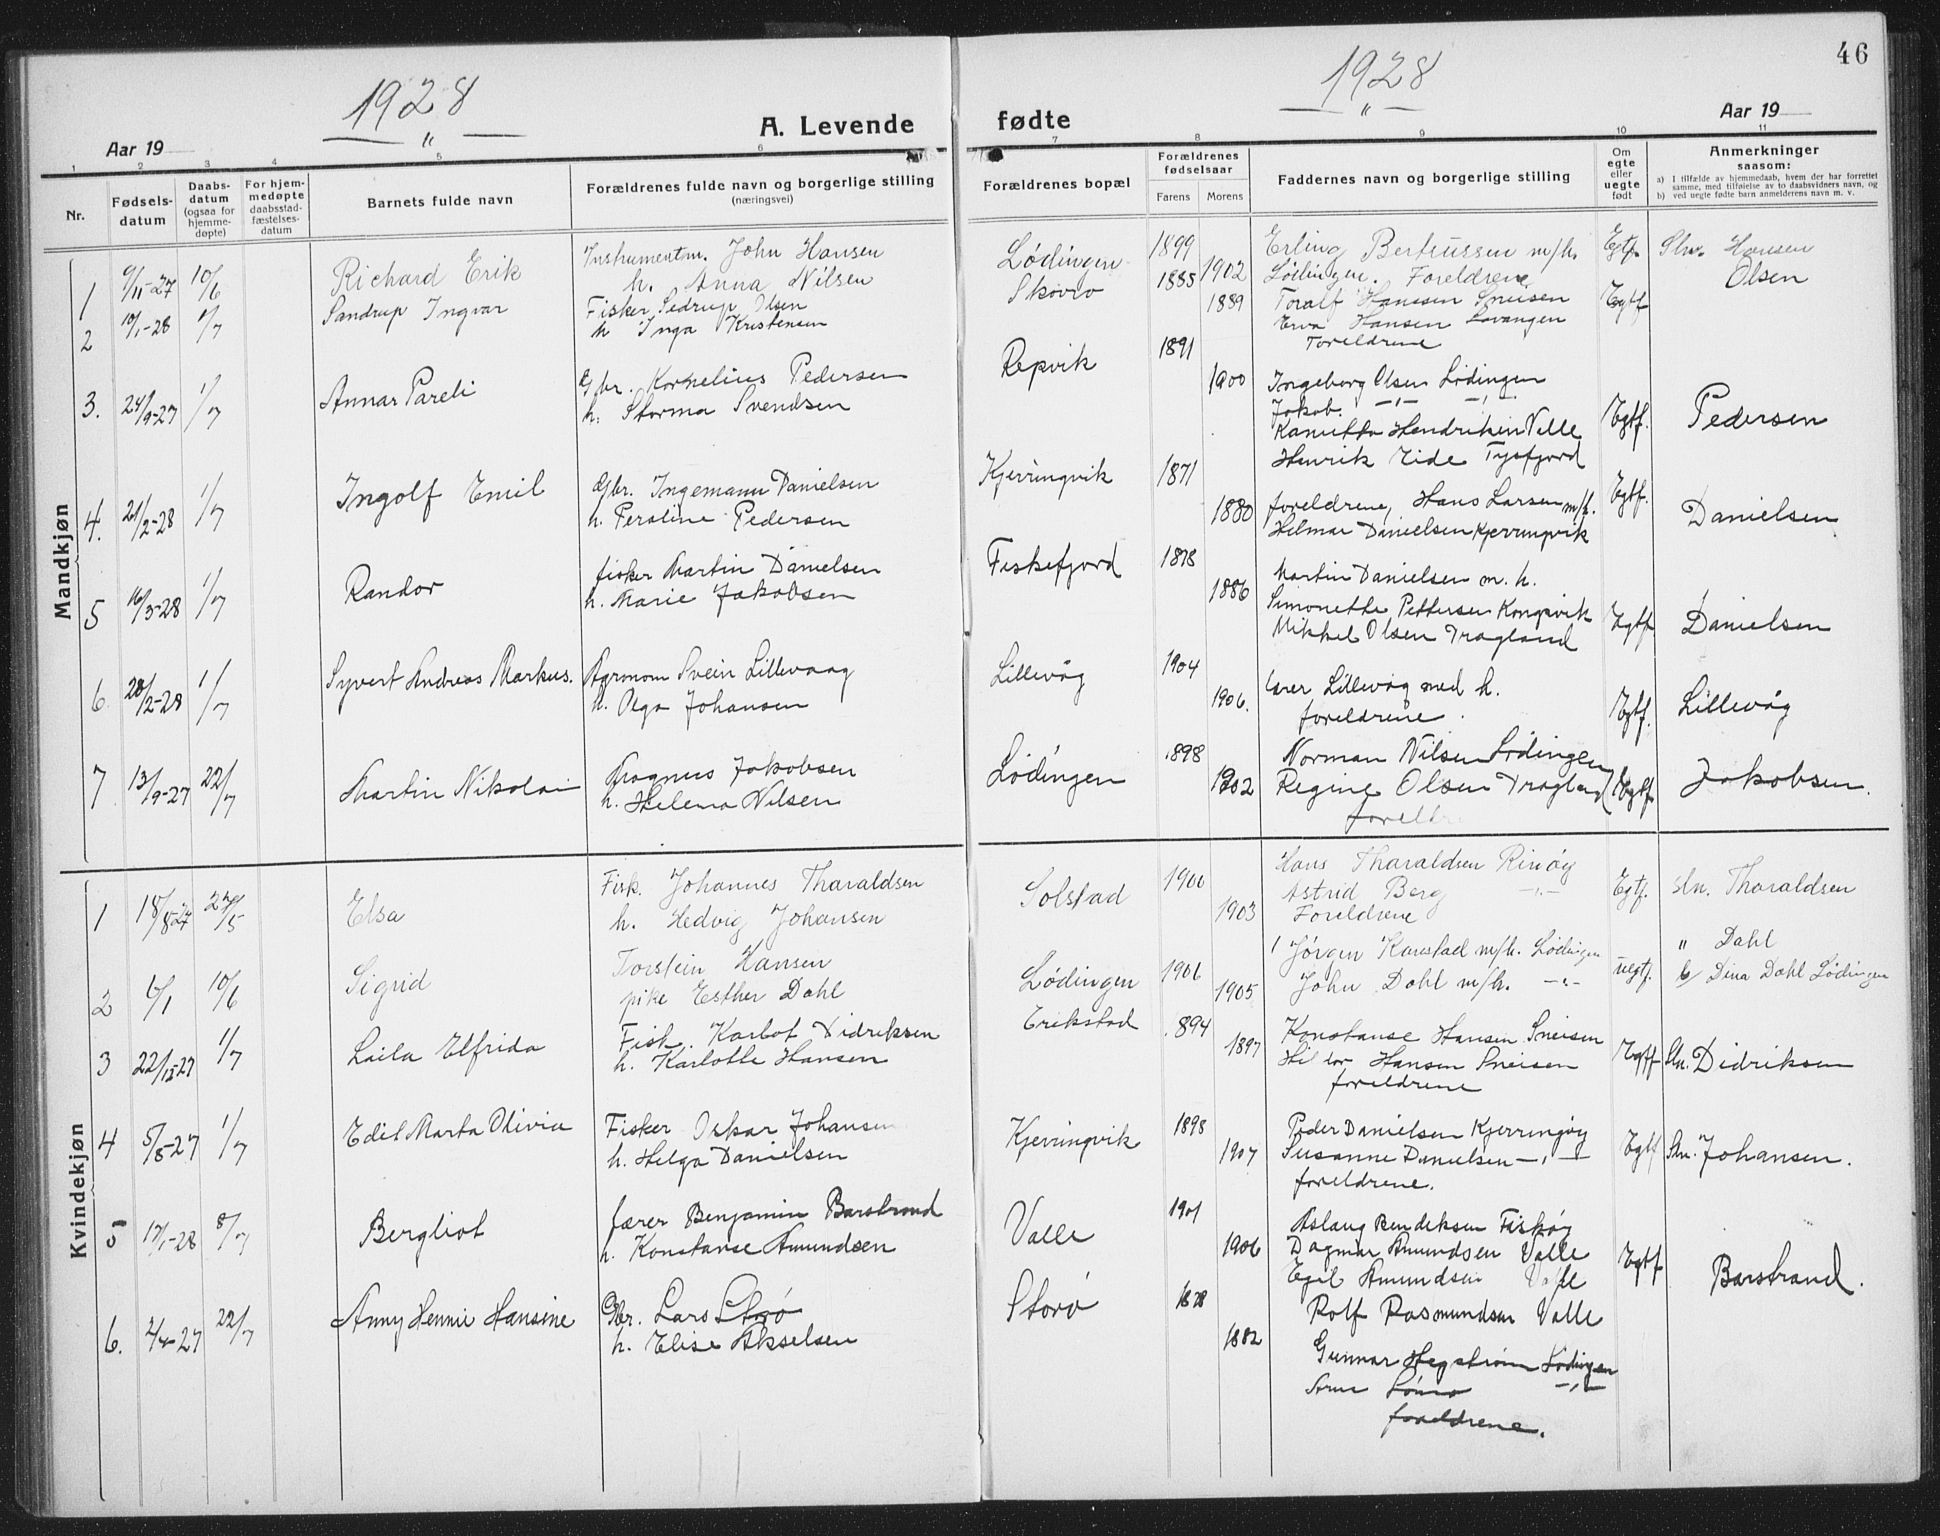 46
1928
"
1928
"
Aar 19
A. Levende
fødte
Aar 19
1 2 3 4 5 6 7 8 9 10 11
Nr.
Fødsels-
datum
Daabs-
datum
(ogsaa for
hjemme-
døpte)
For hjem-
medøpte
daabsstad-
fæstelses-
datum
Barnets fulde navn
Forældrenes fulde navn og borgerlige stilling
(næringsvei)
Forældrenes bopæl
Forældrenes
fødselsaar
Farens Morens
Faddernes navn og borgerlige stilling
Om
egte
eller
uegte
født
Anmerkninger
saasom:
a) I tilfælde av hjemmedaab, hvem der har forrettet
samme, med tilføielse av to daabsvidners navn, og
b) ved uegte fødte barn anmelderens navn m. v.
Mandkjøn
1 9/11-27 10/6 Richard Erik
Instrumentm. John Hansen
h. Anna Nilsen
Lødingen 1899 1902
Erling Bertnussen m/h.
Lødingen. Foreldrene
Egtf. Hansen
2 10/1-28 1/7 Sandrup Ingvar
Fisker Sedrup Olsen
h Inga Kristensen
Skovro 1885 1889
Toralf Hanssen Sneisen
Erva Hansen Lavangen
Foreldrene
Egtf Olsen
3. 24/9-27 1/7 Annar Pareli
Gbr. Kornelius Pedersen
h. Storma Svendsen
Repvik 1891 1900
Ingeborg Olsen Lødingen
Jakob. -"- -"-
Hendriksen Valle
Henrik Eide Tysfjord
Egtf. Pedersen
4. 21/2-28 1/7 Ingolf Emil
Gbr. Ingemann Danielsen
h. Peroline Pedersen
Kjerringvik 1871 1880
foreldrene, Hans Larsen m/h.
Hilmar Danielsen Kjerringvik
Egtf. Danielsen
5 16/3-28 1/7 Randor
fisker Martin Danielsen
h. Marie Jakobsen
Fiskefjord 1878 1886
Martin Danielsen m. h.
Simonette Pettersen Kongsvik
Mikkel Olsen Trogland
Egtf Danielsen
6 28/2-28 1/7 Syvert Andreas Markus.
Agronom Svein Lillevaag
h. Olga Johansen
Lillevåg 1904 1906.
lærer Lillevåg med h.
foreldrene.
Egtf. Lillevåg
7 13/9-27 22/7 Martin Nikolai
Magnus Jakobsen
h. Helena Nilsen
Lødingen 1898 1902
Norman Nilsen Lødingen
Regine Olsen Trogland
foreldr
Egtf Jakobsen.
Kvindekjøn
1 18/8-27 27/5 Elsa
Fisk. Johannes Tharaldsen
h. Hedvig Johansen
Solstad 1900 1903
Hans Tharaldsen Rinøy
Astrid Berg -"-
Foreldrene
Egtf. Sln. Tharaldsen
2 6/1 10/6 Sigrid
Torstein Hansen
pike Esther Dahl
Lødingen 1906 1905
Jørgen Kanstad m/h. Lødingen
John Dahl m/h. -"-
uegtf. " Dahl
b/ Dina Dahl Lødingen
3 22/12-27 1/7 Laila Elfrida
Fisk. Karlot Didriksen
h. Karlotte Hansen
Erikstad 1894 1897
Konstanse Hansen Sneisen
Hansen Sneisen
foreldrene
Egtf Sln. Didriksen
4 5/8-27 1/7 Edil Marta Olivia
Fisker Oskar Johansen
h. Helga Danielsen
Kjerringvik 1898 1907
Peder Danielsen Kjerringøy
Susanne Danielsen -"-
foreldrene.
Egtf Sln. Johansen.
5 17/1-28 8/7 Bergliot
lærer Benjamin Barstrand
h. Konstanse Amundsen
Valle 1901 1906
Aslaug Bendiksen Fiskøy
Dagmar Amundsen Valle
Egil Amundsen Valle
Rolf Rasmundsen Valle
Egtf Barstrand.
6. 2/4-27 22/7 Anny Hennie Hansine
Gbr. Lars Storø
h. Elise Akselsen
Storø 1878 1882
Gunnar Hegstrøm Lødingen
-"-
foreldrene.